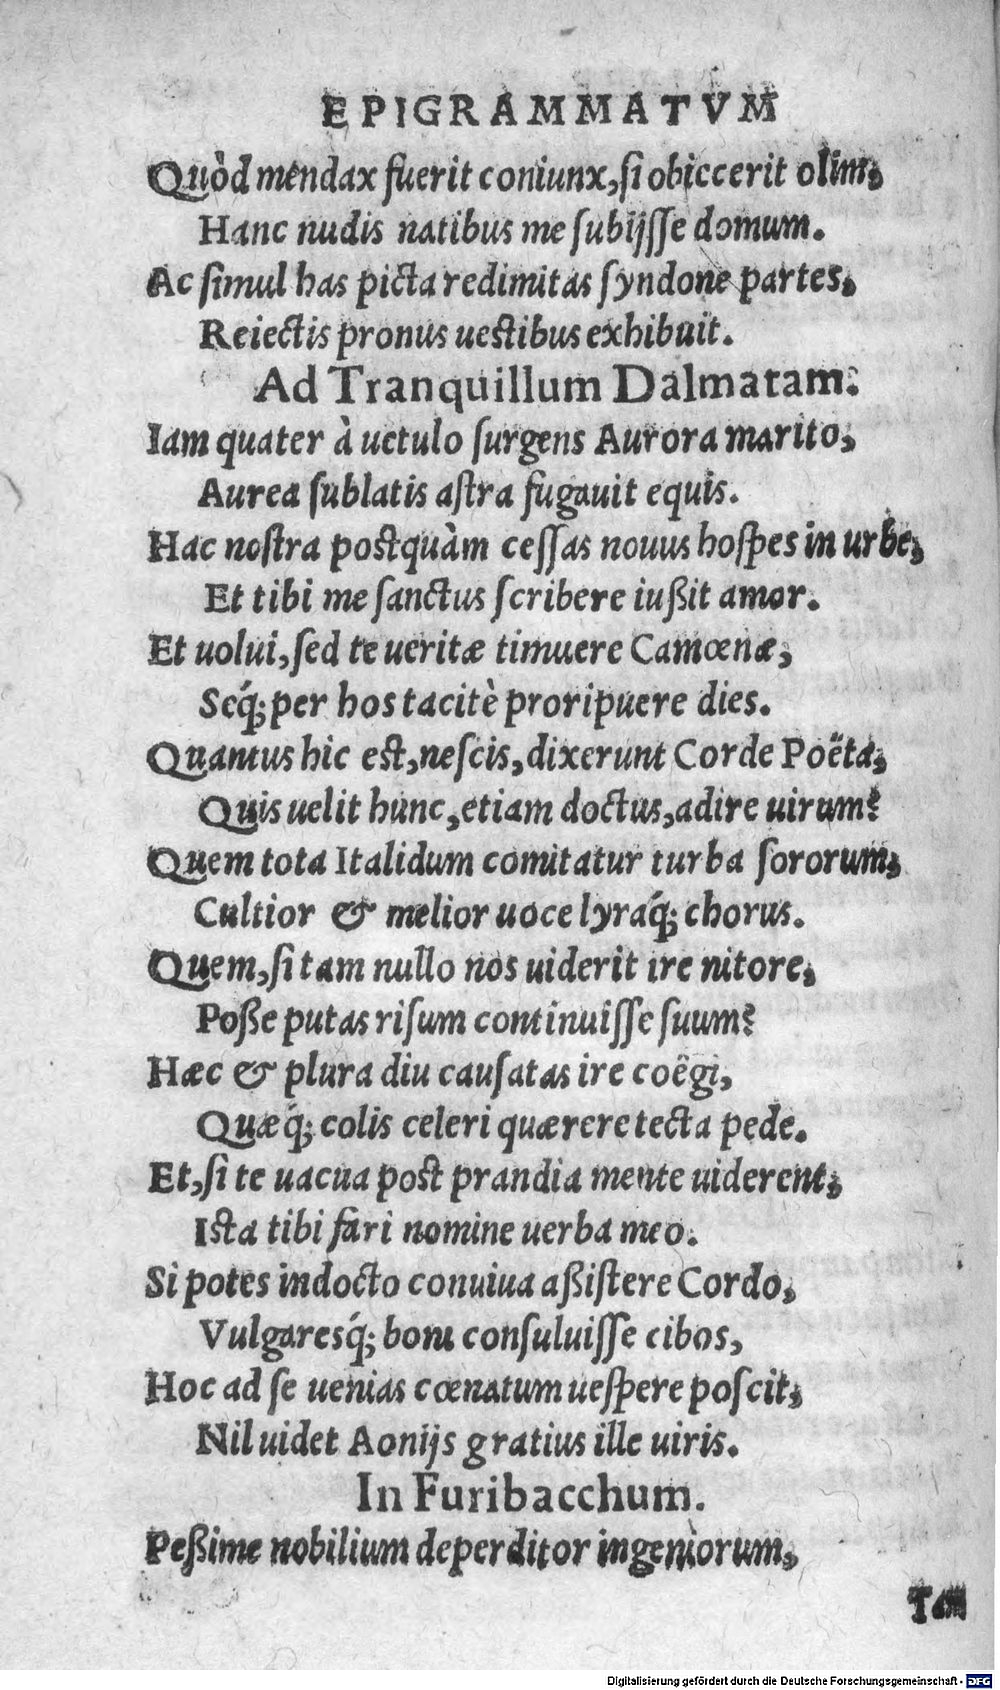 EPIGRAMMATVM
Quòd mendax fuerit coniunx, si obiecerit olim,
Hanc nudis natibus me subijsse domum.
Ac simul has picta redimitas syndone partes,
Reiectis pronus uestibus exhibuit.
Ad Tranquillum Dalmatam.
Iam quater à uetulo surgens Aurora marito,
Aurea sublatis astra fugauit equis.
Hac nostra postquàm cessas nouus hospes in urbe,
Et tibi me sanctus scribere iußit amor.
Et uolui, sed te ueritæ timuere Camœnæ,
Seq́; per hos tacitè proripuere dies.
Quantus hic est, nescis, dixerunt Corde Poëta,
Quis uelit hunc, etiam doctus, adire uirum?
Quem tota Italidum comitatur turba sororum,
Cultior & melior uoce lyraq́; chorus.
Quem, si tam nullo nos uiderit ire nitore,
Poße putas risum continuisse suum?
Hæc & plura diu causatas ire coëgi,
Quæq́; colis celeri quærere tecta pede.
Et, si te uacua post prandia mente uiderent,
Ista tibi fari nomine uerba meo.
Si potes indocto conuiua aßistere Cordo,
Vulgaresq́; boni consuluisse cibos,
Hoc ad se uenias cœnatum uespere poscit,
Nil uidet Aonijs gratius ille uiris.
In Furibacchum.
Peßime nobilium deperditor ingeniorum,
Tam
Digitalisierung gefördert durch die Deutsche Forschungsgemeinschaft - DFG